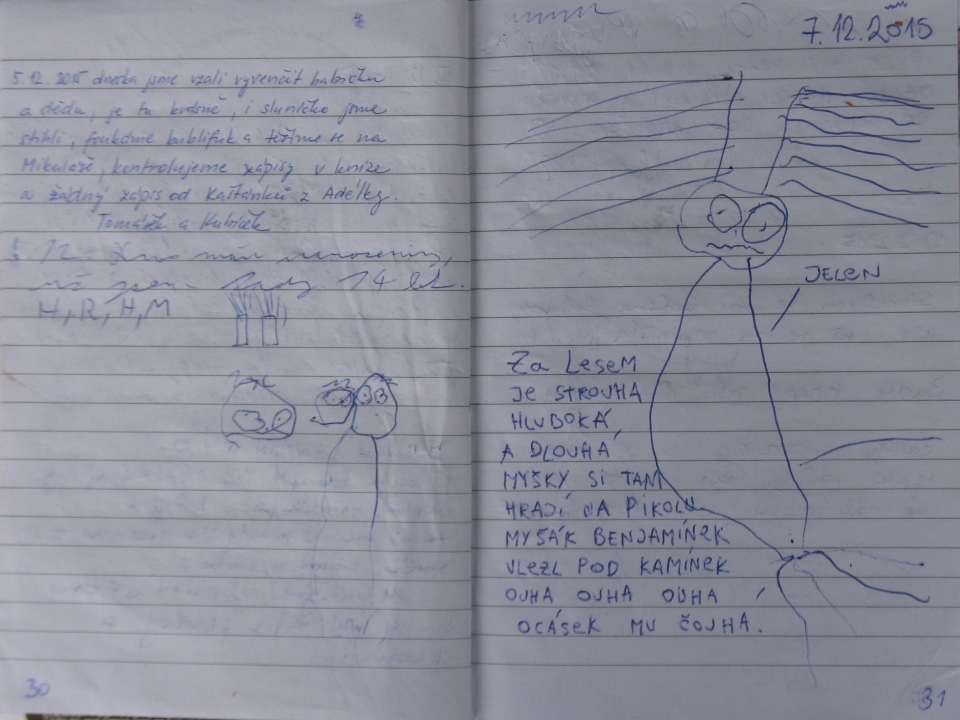 5.12.2015 dneska jsme vzali vyvenčit babičku
a dědu, je tu krásně, i sluníčko jsme
stihli, foukáme bublifuk a těšíme se na
Mikuláše, kontrolujeme zápisy v knize
a žádný zápis od Kaštánků z Adélky.
Tomášek a Kubíček
12 mám narozeniny,
14 let.
H, R, H, M
30
7.12.2015
JELEN
Za LeseM
JE STROUHA
HLUBOKÁ,
A DLOUHÁ
MYŠKY SI TAM
HRAJÍ NA PIKOLU
MYŠÁK BENJAMÍNEK
VLEZL POD KAMÍNEK
OUHA OUHA OUHA,
OCÁSEK MU ČOUHA.
31